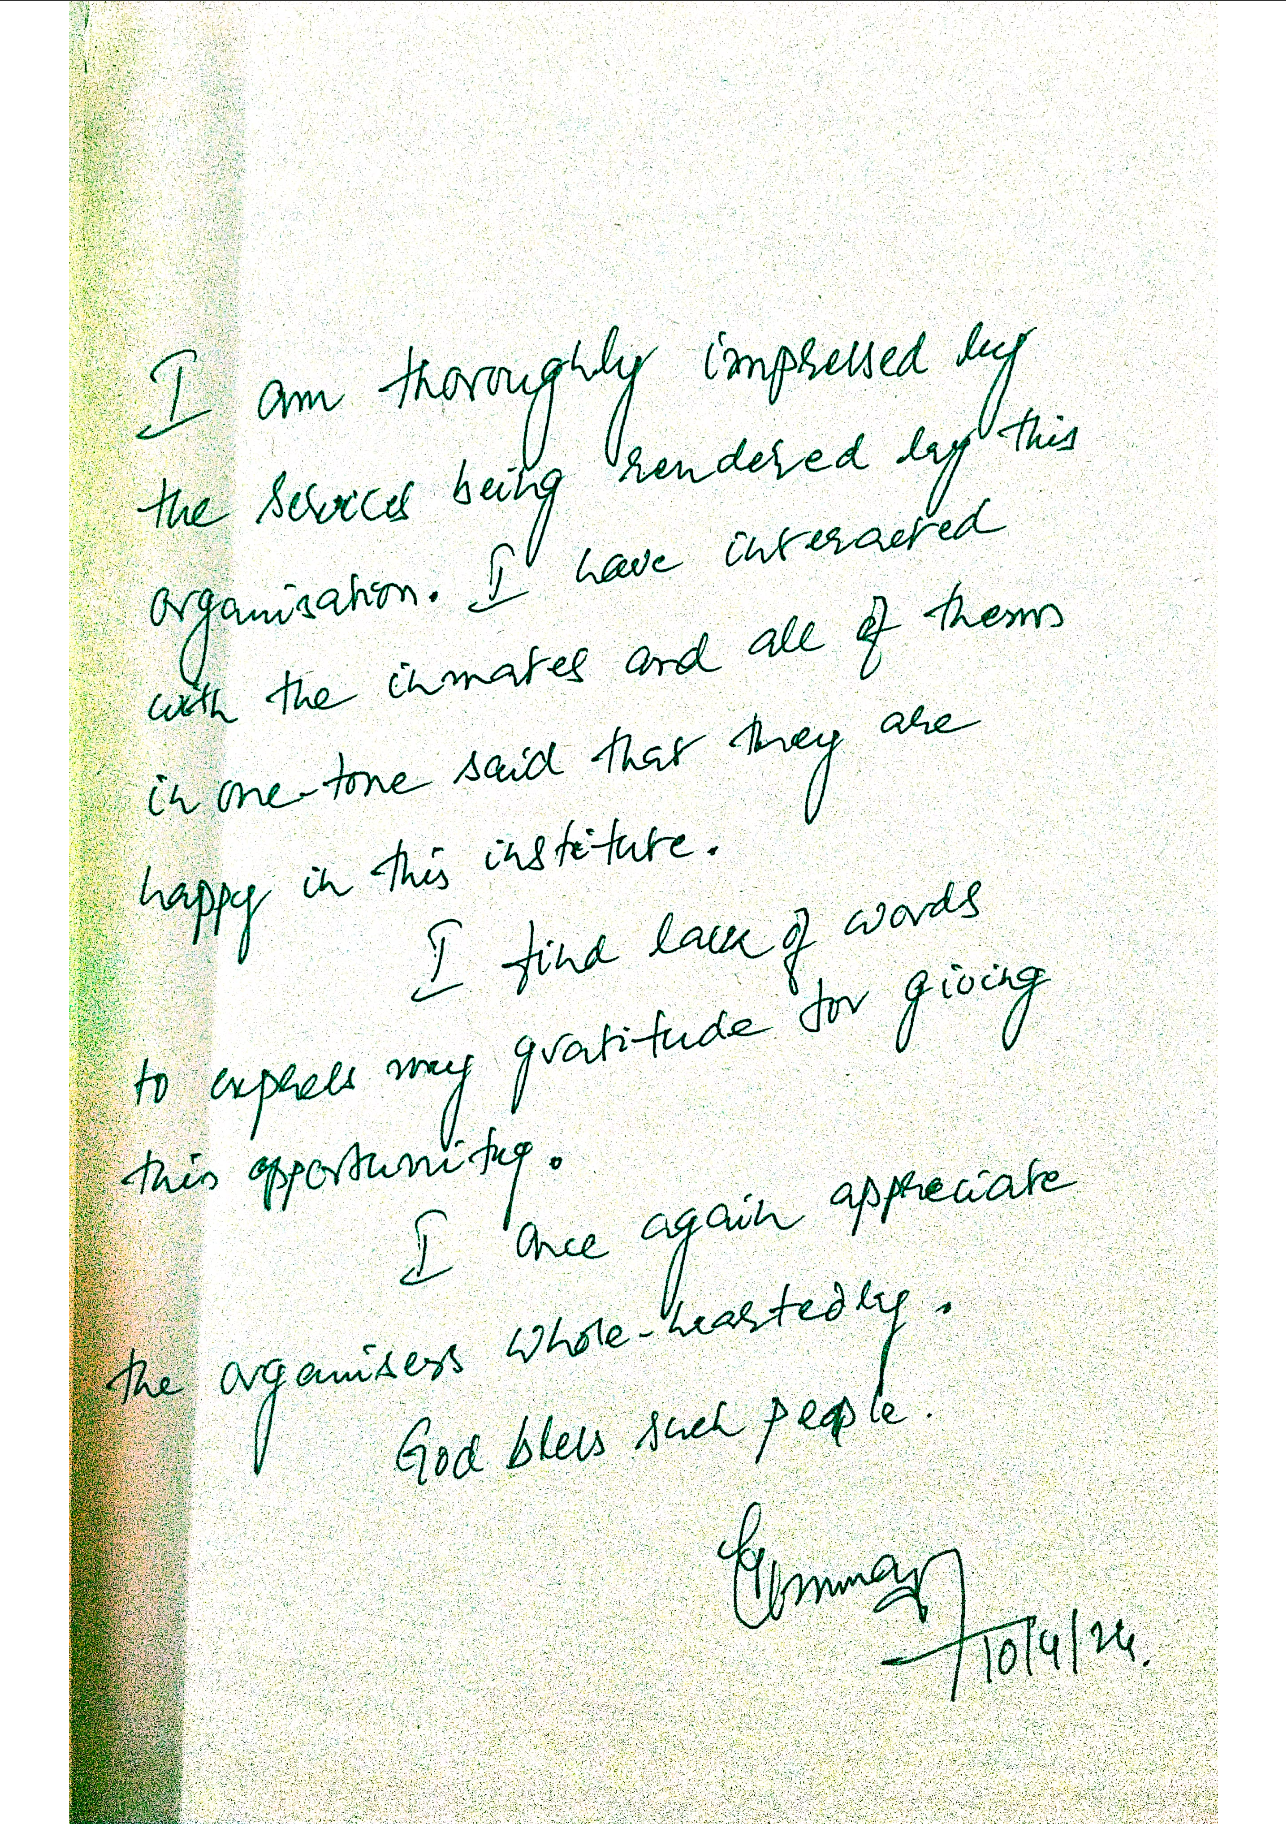 I am thoroughly impressed by
the services being rendered by this
organisation. I have interacted
with the inmates and all of them
in one-tone said that they are
happy in this institute.
I find lack of words
to express my gratitude for giving
this opportunity.
I once again appreciate
the organisers whole-heartedly.
God bless such people.
10/4/24.